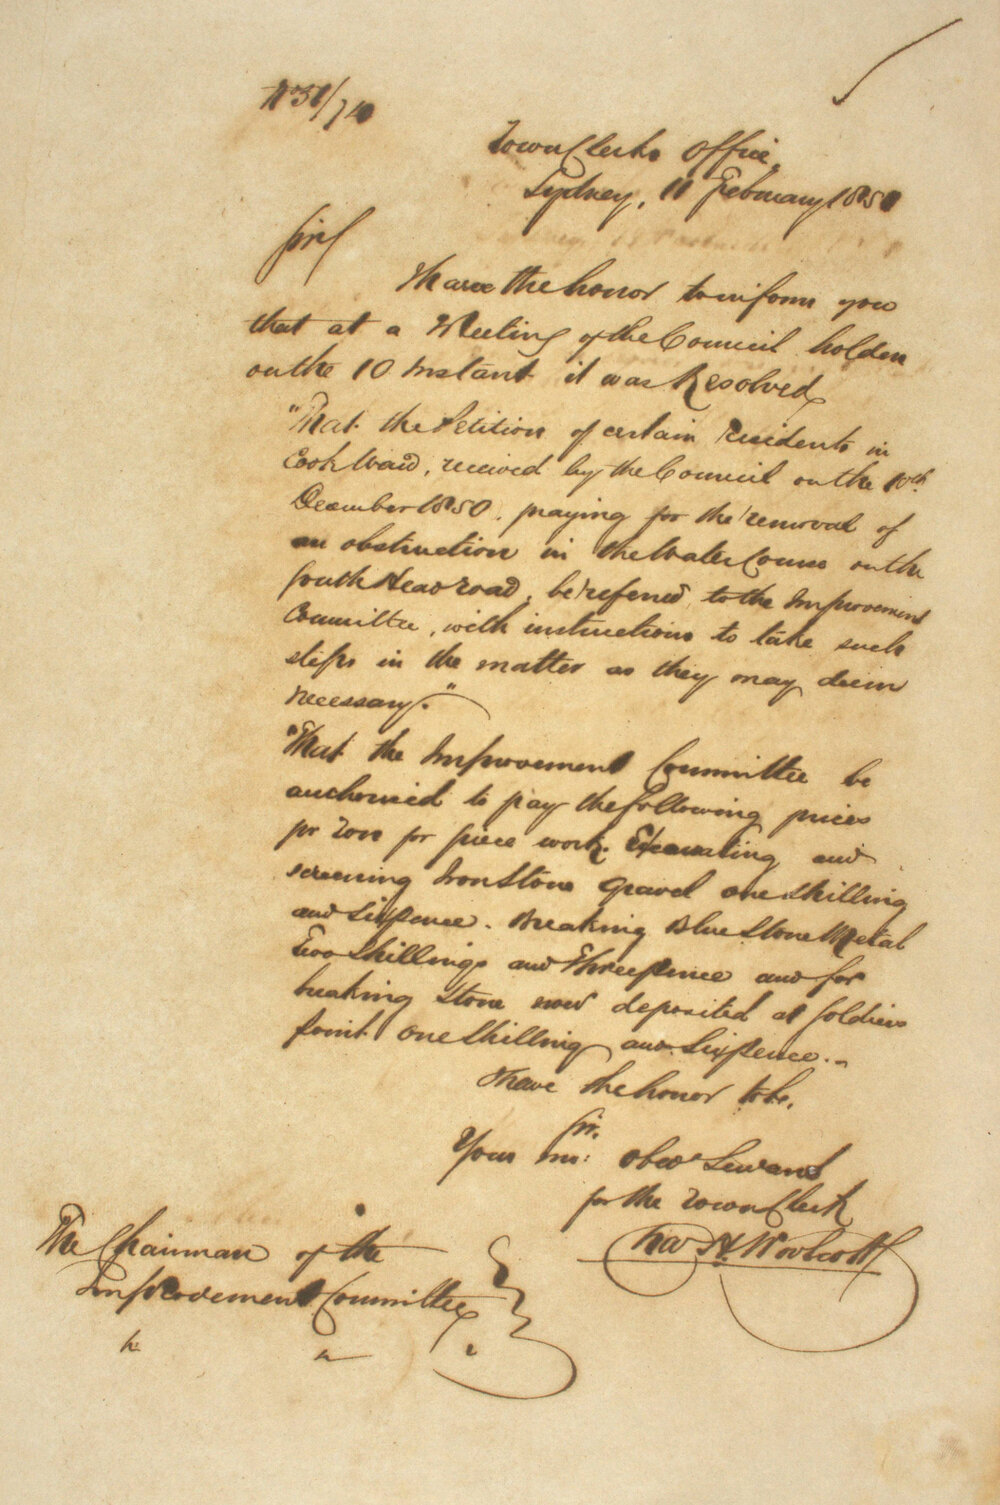 No 51/74
Town Clerks Office,
Sydney, 11 February 1851
Sir
I have the honor to inform you
that at a Meeting of the Council holden
on the 10 Instant it was Resolved
"That the Petition of certain Residents in
Cook Ward, received by the Council on the 10th
December 1850, praying for the removal of
an obstruction in the Water Course on the
South Head road, be referred, to the Improvement
Committee, with instructions to take such
steps in the matter as they may deem
necessary."
"That the Improvement Committee be
authorised to pay the following prices
pr Ton for piece work. Excavating and
screening Iron Stone Gravel one shilling
and Sixpence. Breaking Blue Stone Metal
Two Shillings and Threepence and for
breaking Stone now deposited at Soldiers
Point One Shilling and Sixpence.
I have the honor to be,
Sir,
Your mo: Obed Servant
for the Town Clerk
Chas H. Woolcott
The Chairman of the
Improvement Committee